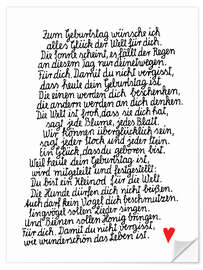 Zum Geburtstag wünsche ich
alles Glück der Welt für dich.
Die Sonne scheint, es fällt der Regen
an diesem Tag nur deinetwegen.
Für dich. Damit du nicht vergisst,
dass heute dein Geburtstag ist.
Die einen werden dich beschenken,
die andern werden an dich denken.
Die Welt ist froh, dass sie dich hat,
sagt jede Blume, jedes Blatt.
Wir können überglücklich sein,
sagt jeder Stock und jeder Stein.
Ein Glück, dass du geboren bist.
Weil heute dein Geburtstag ist,
wird mitgeteilt und festgestellt:
Du bist ein Kleinod für die Welt.
Die Hunde dürfen dich nicht beißen.
Auch darf kein Vogel dich beschmutzen.
Singvögel sollen Lieder singen,
und Bienen sollen Honig bringen.
Für dich. Damit du nicht vergisst,
wie wunderschön das Leben ist.